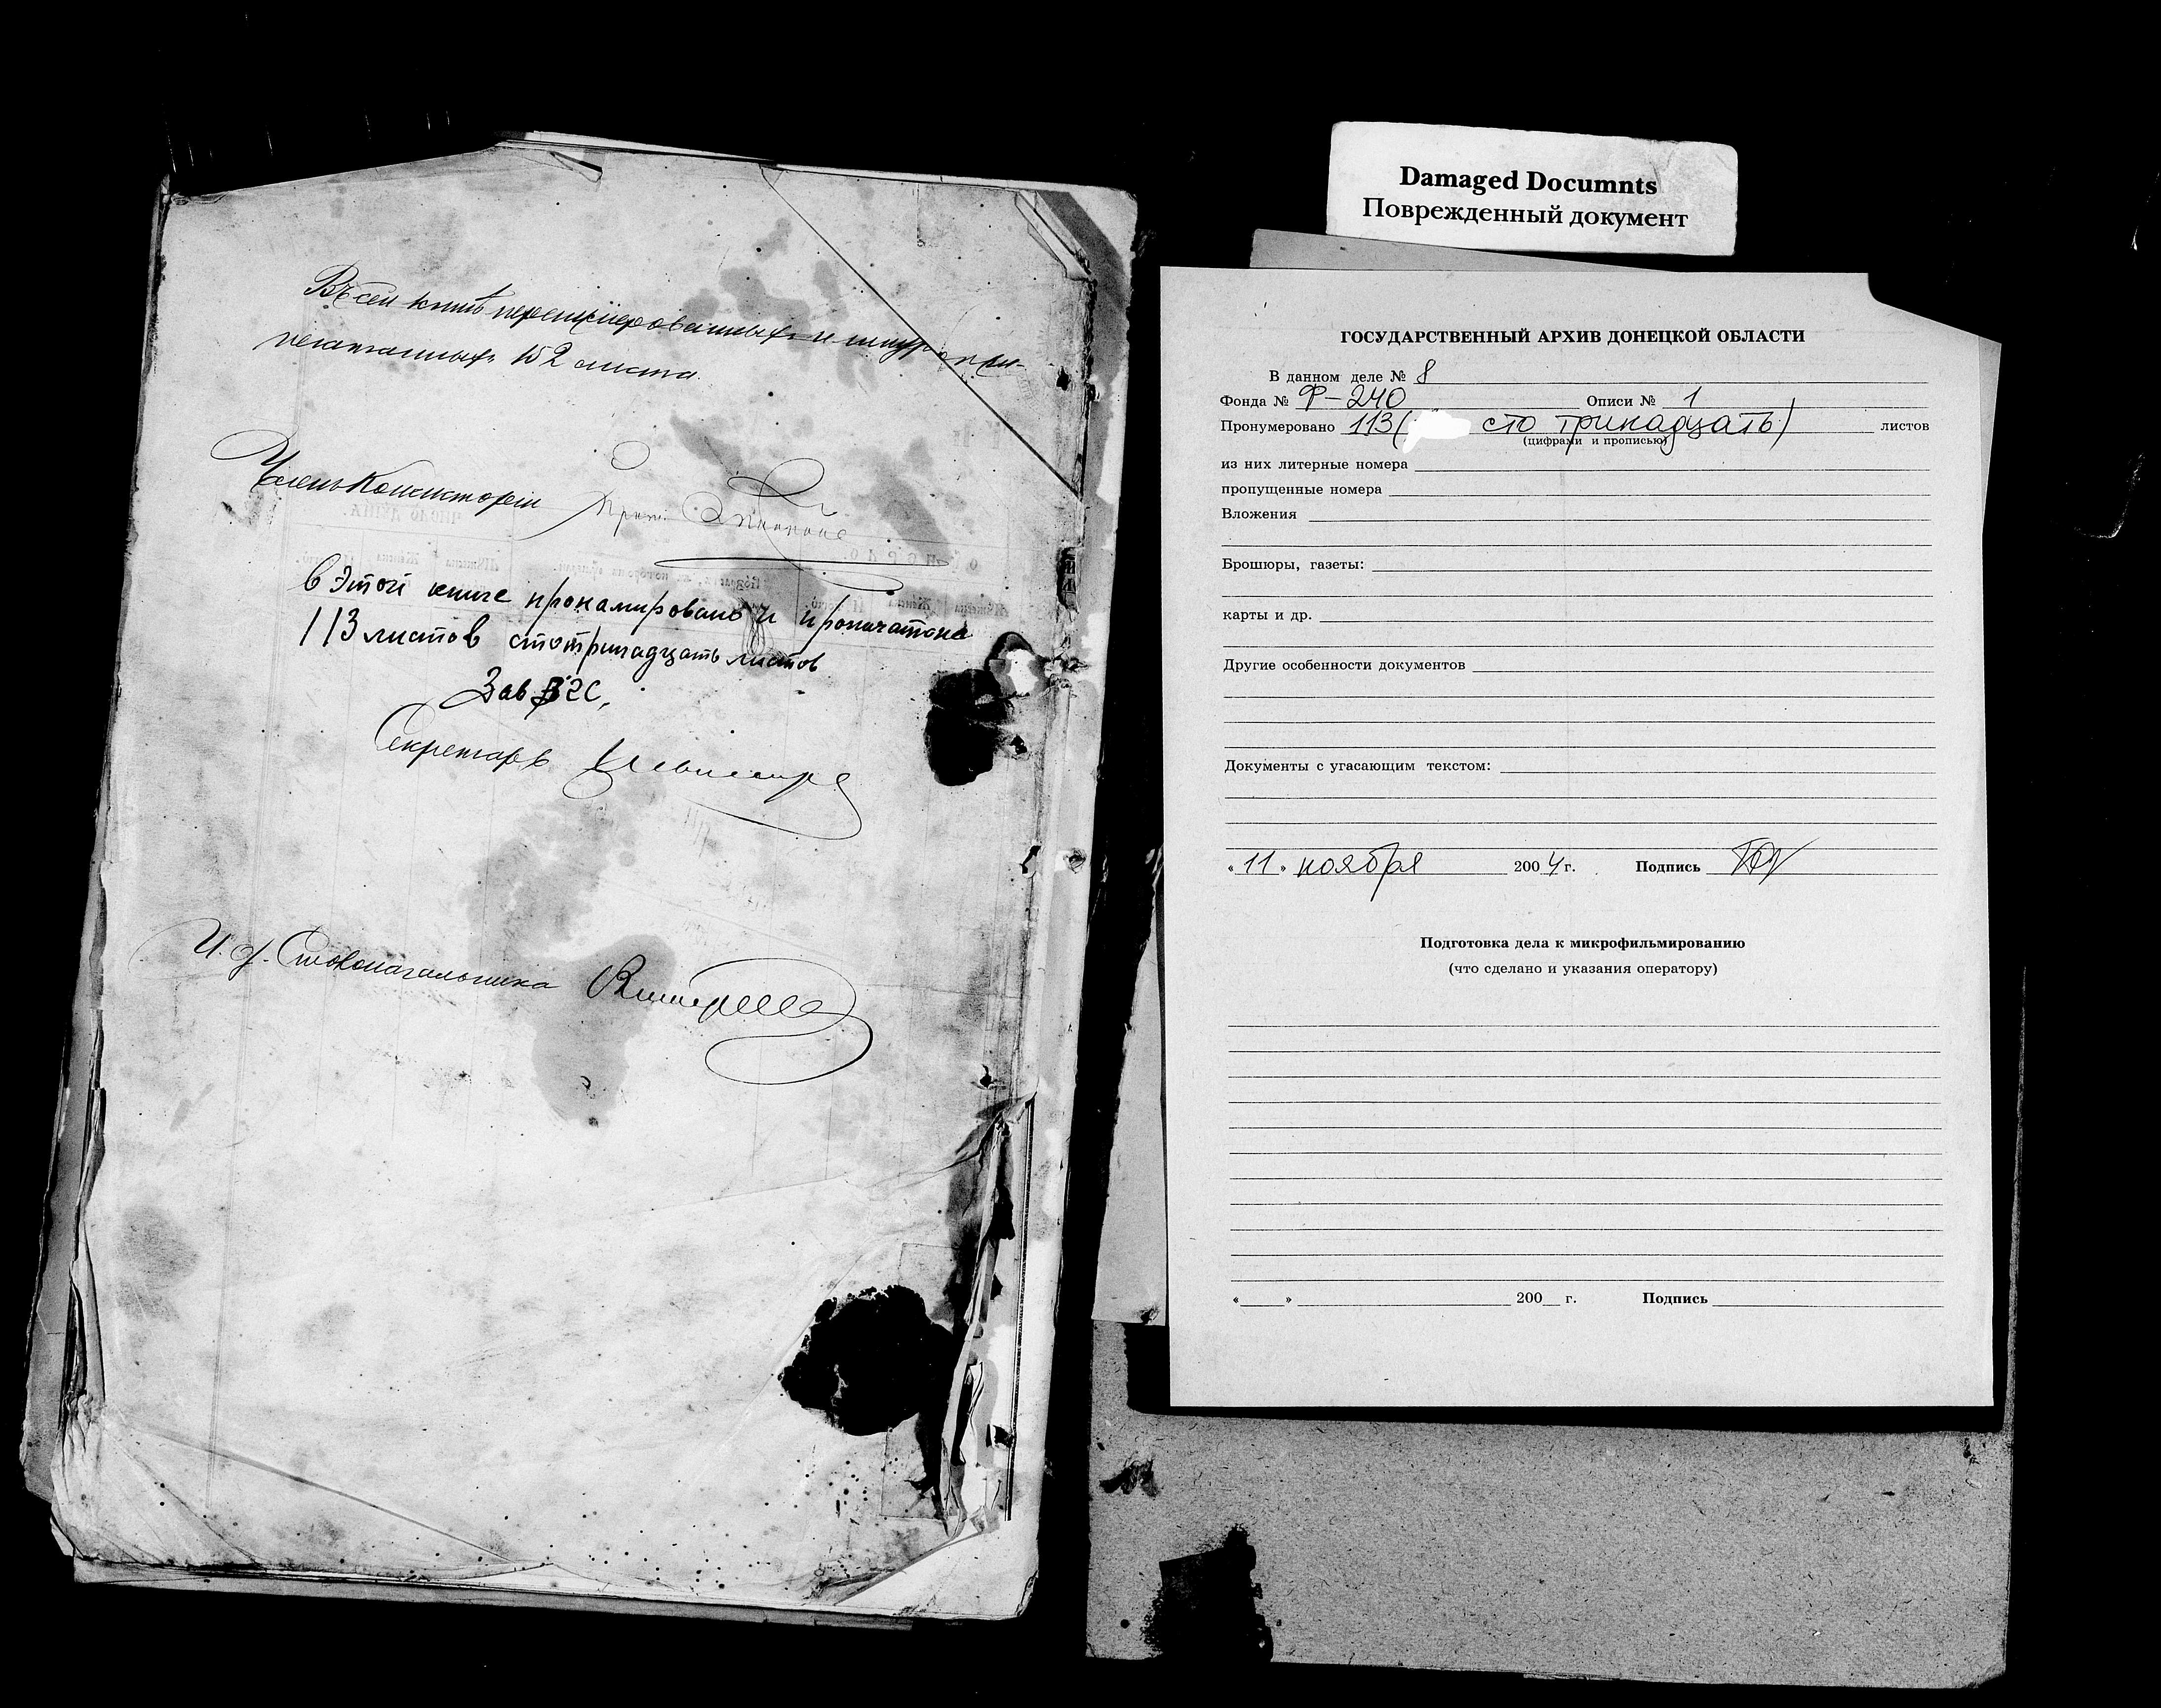 Въ сей книгѣ перенумерованныхъ и шнуроприпечатанныхъ 152 листа.
Членъ Консисторіи Прот.
в Этой книге пронамировано и пропичатона
113 листов стотринадцать листов
Зав ЗГС,
Секретарь
И. д. Столоначальника
Damaged Documnts
Поврежденный документ
ГОСУДАРСТВЕННЫЙ АРХИВ ДОНЕЦКОЙ ОБЛАСТИ
В данном деле № 8
Фонда № Ф-240 Описи № 1
Пронумеровано 113 ( сто тринадцать) листов
(цифрами и прописью)
из них литерные номера
пропущенные номера
Вложения
Брошюры, газеты:
карты и др.
Другие особенности документов
Документы с угасающим текстом:
« 11 » ноября 2004 г. Подпись
Подготовка дела к микрофильмированию
(что сделано и указания оператору)
« » 200 г. Подпись